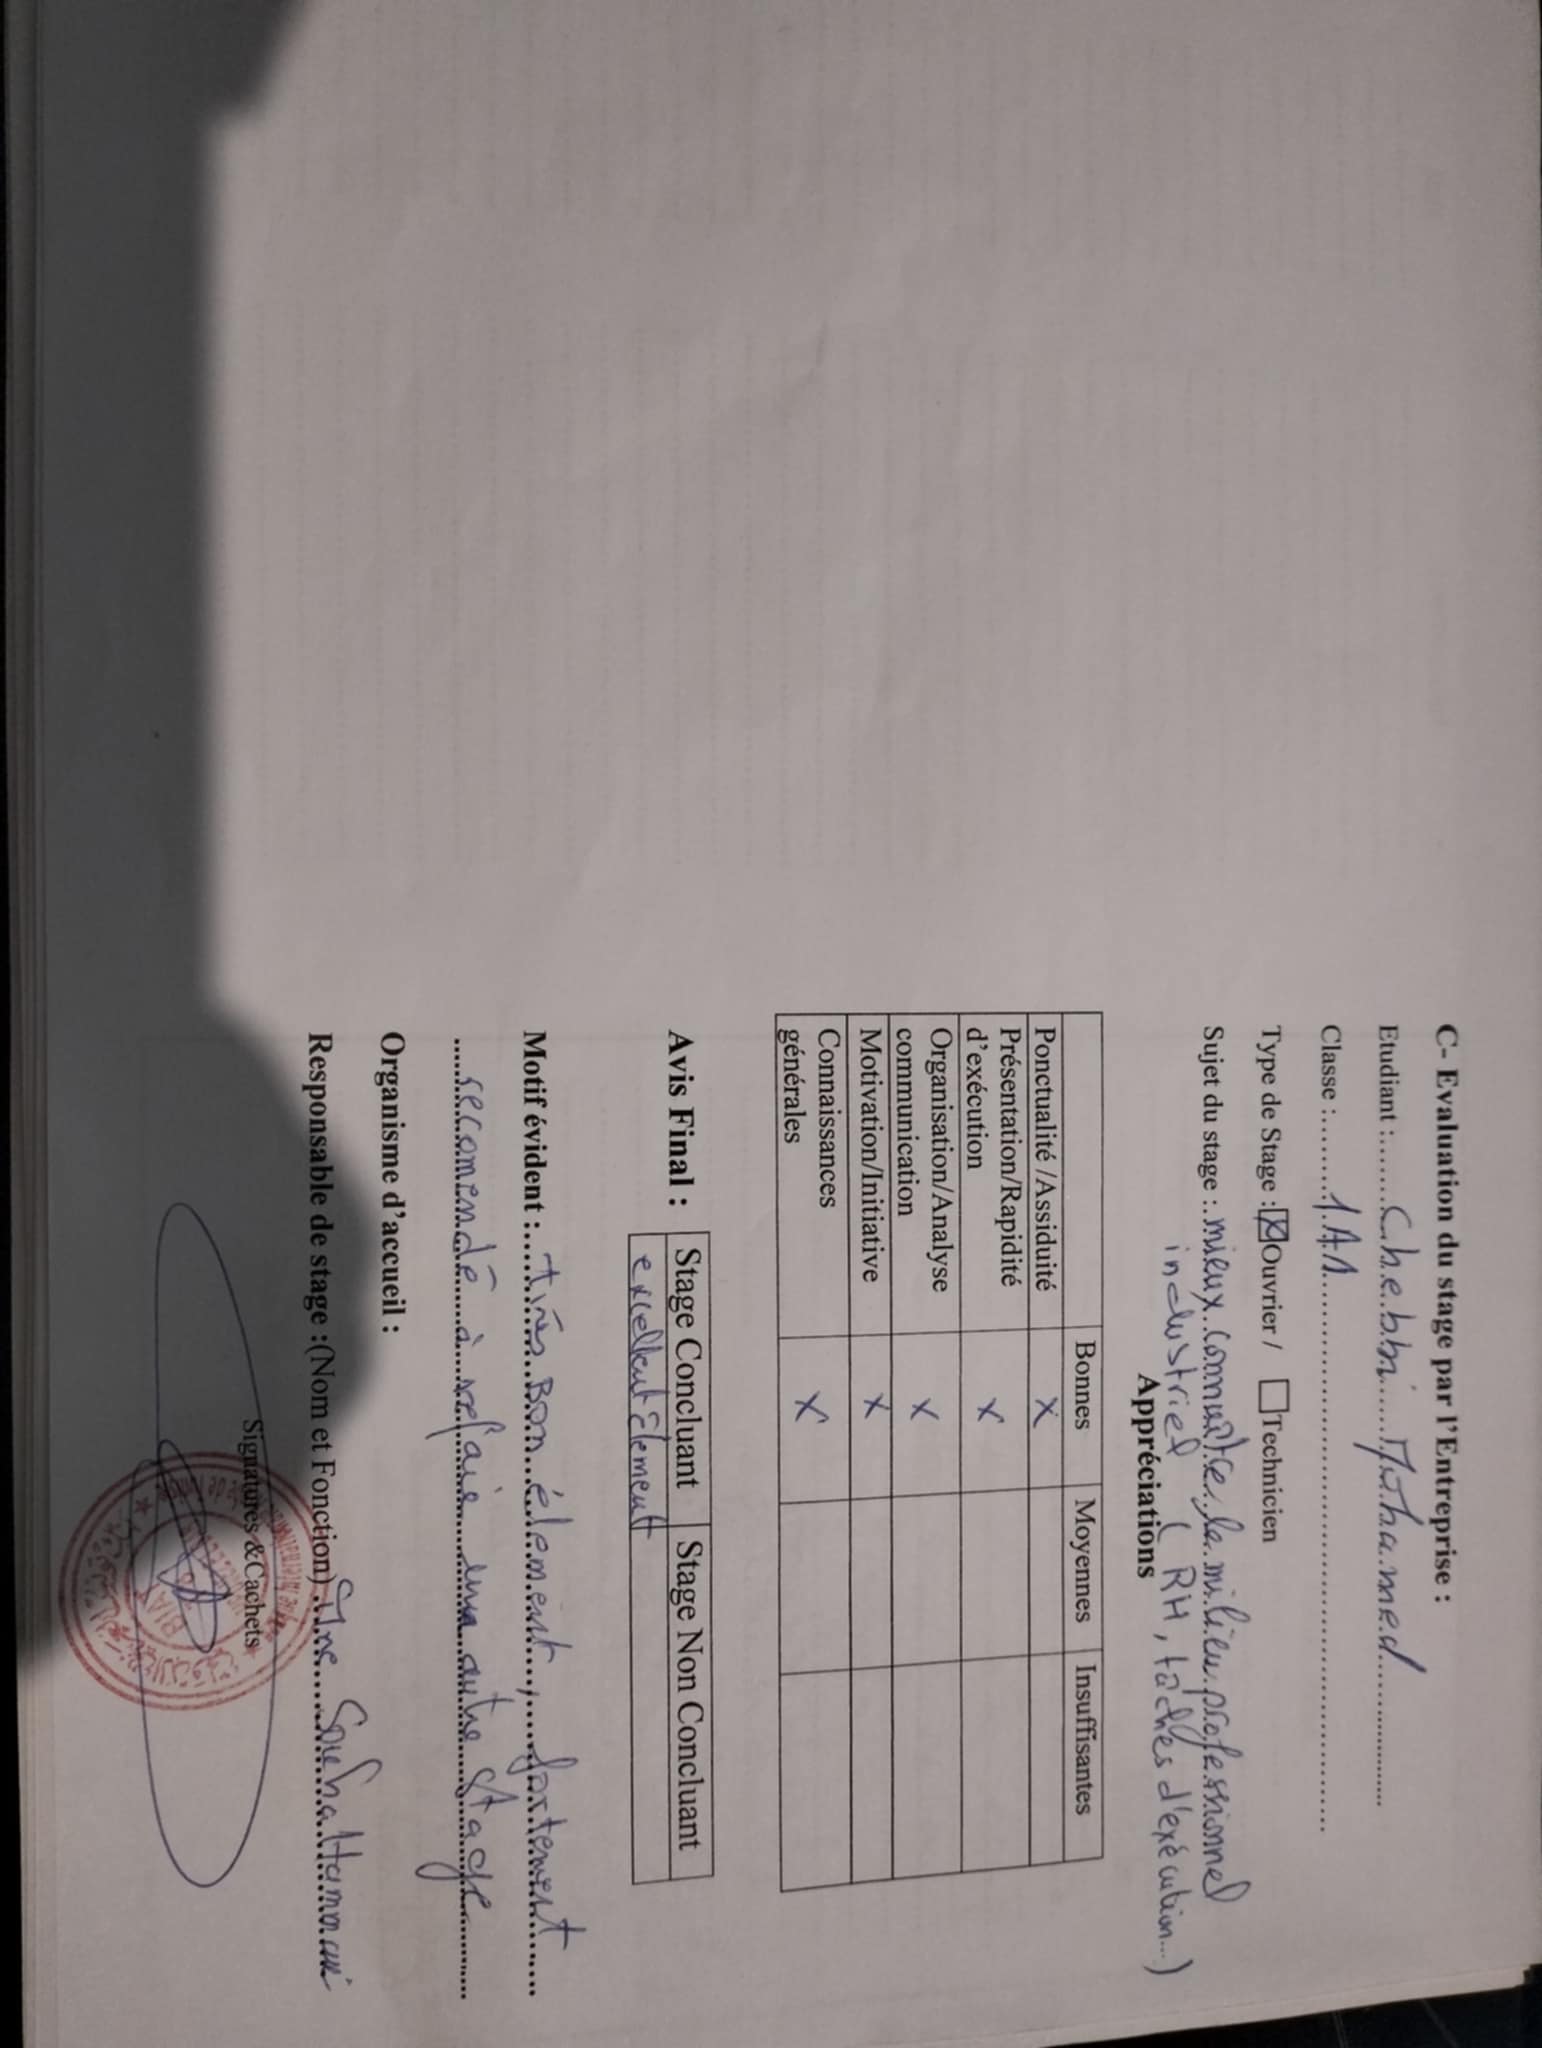 C- Evaluation du stage par l'Entreprise :
Etudiant :.......Chebbi.....Mohamed..................
Classe :........1.A
Type de Stage : ☒Ouvrier / ☐Technicien
Sujet du stage : mieux connaître le milieu professionnel
industriel ( RH, tâches d'exécution...)
Appréciations
Bonnes Moyennes Insuffisantes
Ponctualité /Assiduité X
Présentation/Rapidité
d'exécution X
Organisation/Analyse
communication X
Motivation/Initiative X
Connaissances
générales X
Avis Final :
Stage Concluant Stage Non Concluant
excellent élement
Motif évident :.....très Bon élement, fortement
recomendé à refaire un autre stage
Organisme d'accueil :
Responsable de stage :(Nom et Fonction)
Signatures &Cachets
BIA